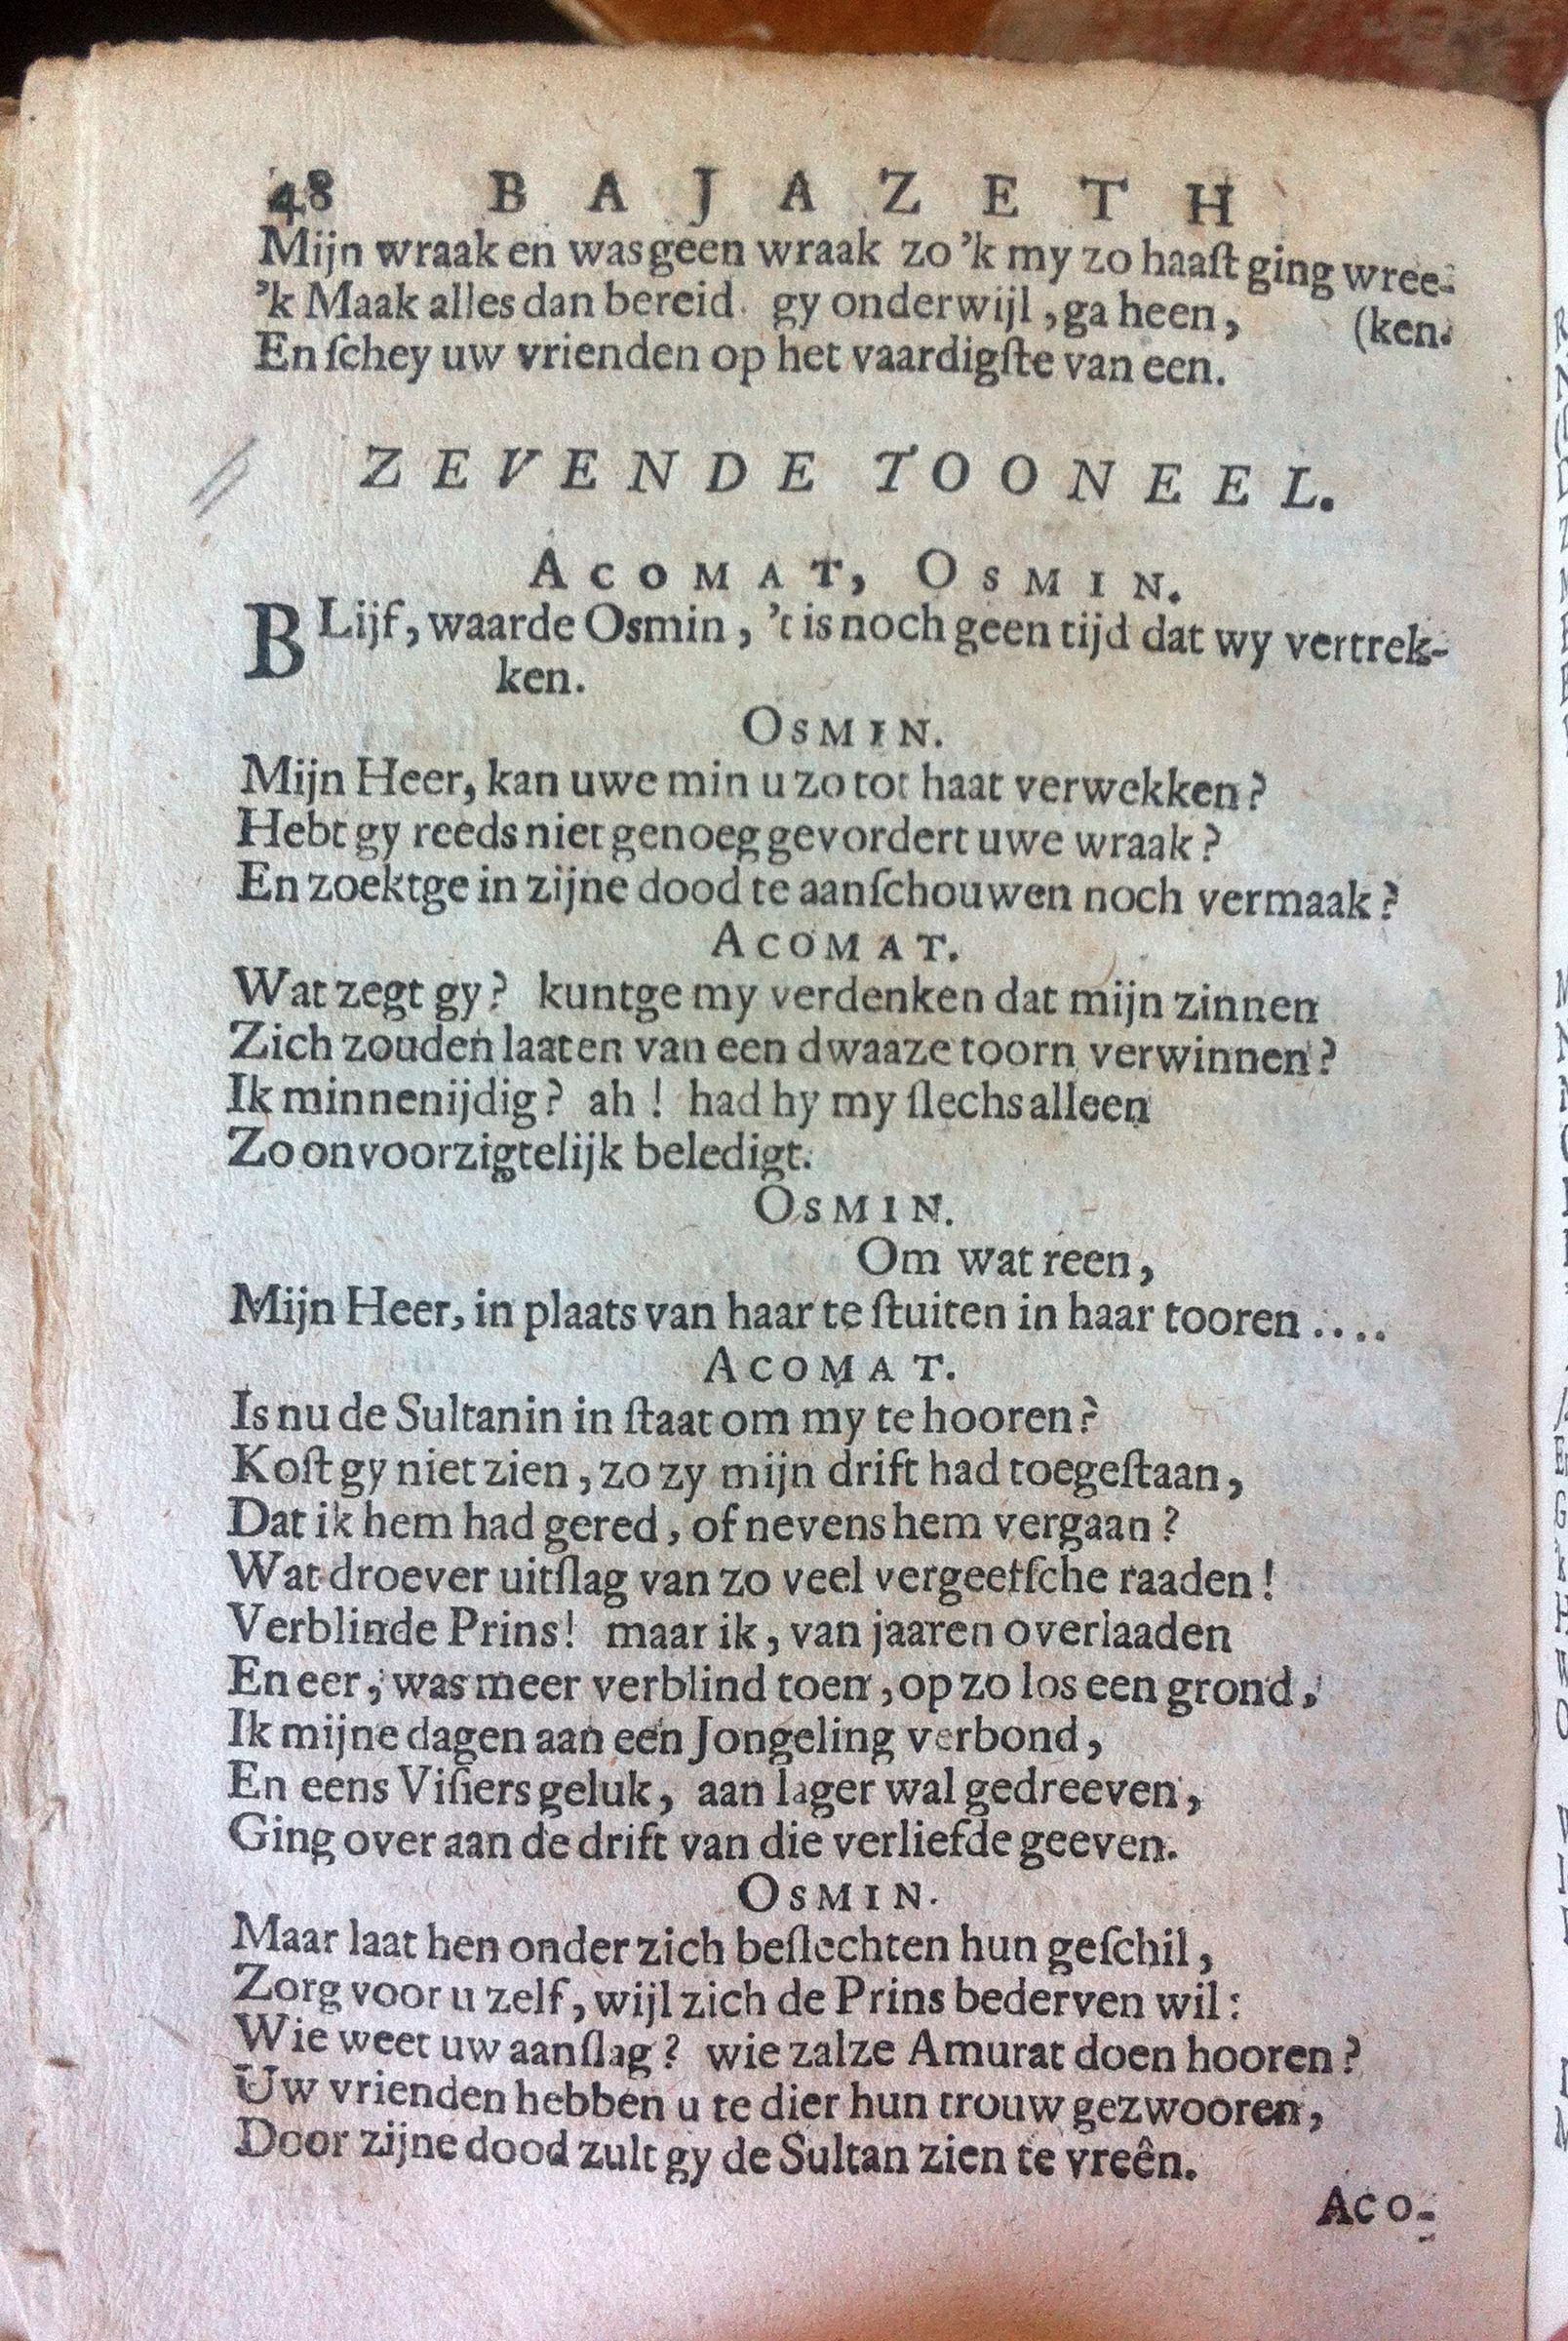 48 BAJAZETH
Mijn wraak en was geen wraak zo 'k my zo haaſt ging wree-
'k Maak alles dan bereid. gy onderwijl, ga heen, (ken.
En ſchey uw vrienden op het vaardigſte van een.
ZEVENDE TOONEEL.
ACOMAT, OSMIN.
BLijf, waarde Osmin, 't is noch geen tijd dat wy vertrek-
ken.
OSMIN.
Mijn Heer, kan uwe min u zo tot haat verwekken?
Hebt gy reeds niet genoeg gevordert uwe wraak?
En zoektge in zijne dood te aanſchouwen noch vermaak?
ACOMAT.
Wat zegt gy? kuntge my verdenken dat mijn zinnen
Zich zouden laaten van een dwaaze toorn verwinnen?
Ik minnenijdig? ah! had hy my ſlechs alleen
Zo onvoorzigtelijk beledigt.
OSMIN.
Om wat reen,
Mijn Heer, in plaats van haar te ſtuiten in haar tooren....
ACOMAT.
Is nu de Sultanin in ſtaat om my te hooren?
Koſt gy niet zien, zo zy mijn drift had toegeſtaan,
Dat ik hem had gered, of nevens hem vergaan?
Wat droever uitſlag van zo veel vergeetſche raaden!
Verblinde Prins! maar ik, van jaaren overlaaden
En eer, was meer verblind toen, op zo los een grond,
Ik mijne dagen aan een Jongeling verbond,
En eens Viſiers geluk, aan lager wal gedreeven,
Ging over aan de drift van die verliefde geeven.
OSMIN.
Maar laat hen onder zich beſlechten hun geſchil,
Zorg voor u zelf, wijl zich de Prins bederven wil:
Wie weet uw aanſlag? wie zalze Amurat doen hooren?
Uw vrienden hebben u te dier hun trouw gezwooren,
Door zijne dood zult gy de Sultan zien te vreên.
ACO-